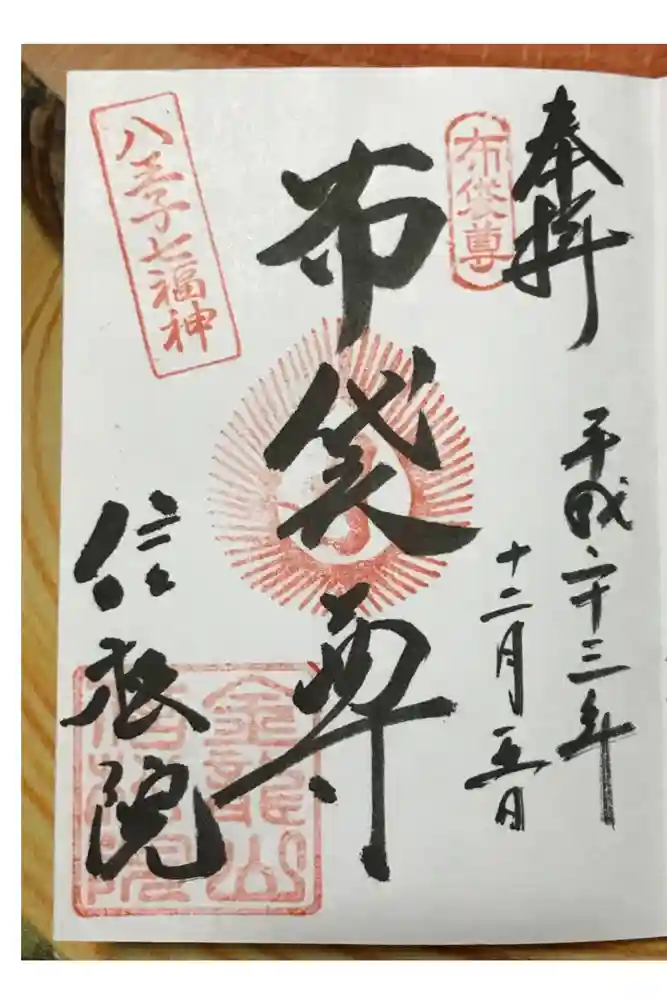 奉拝
平成二十三年
十二月五日
布袋尊
布袋尊
八王子七福神
信松院
金龍山
信松院